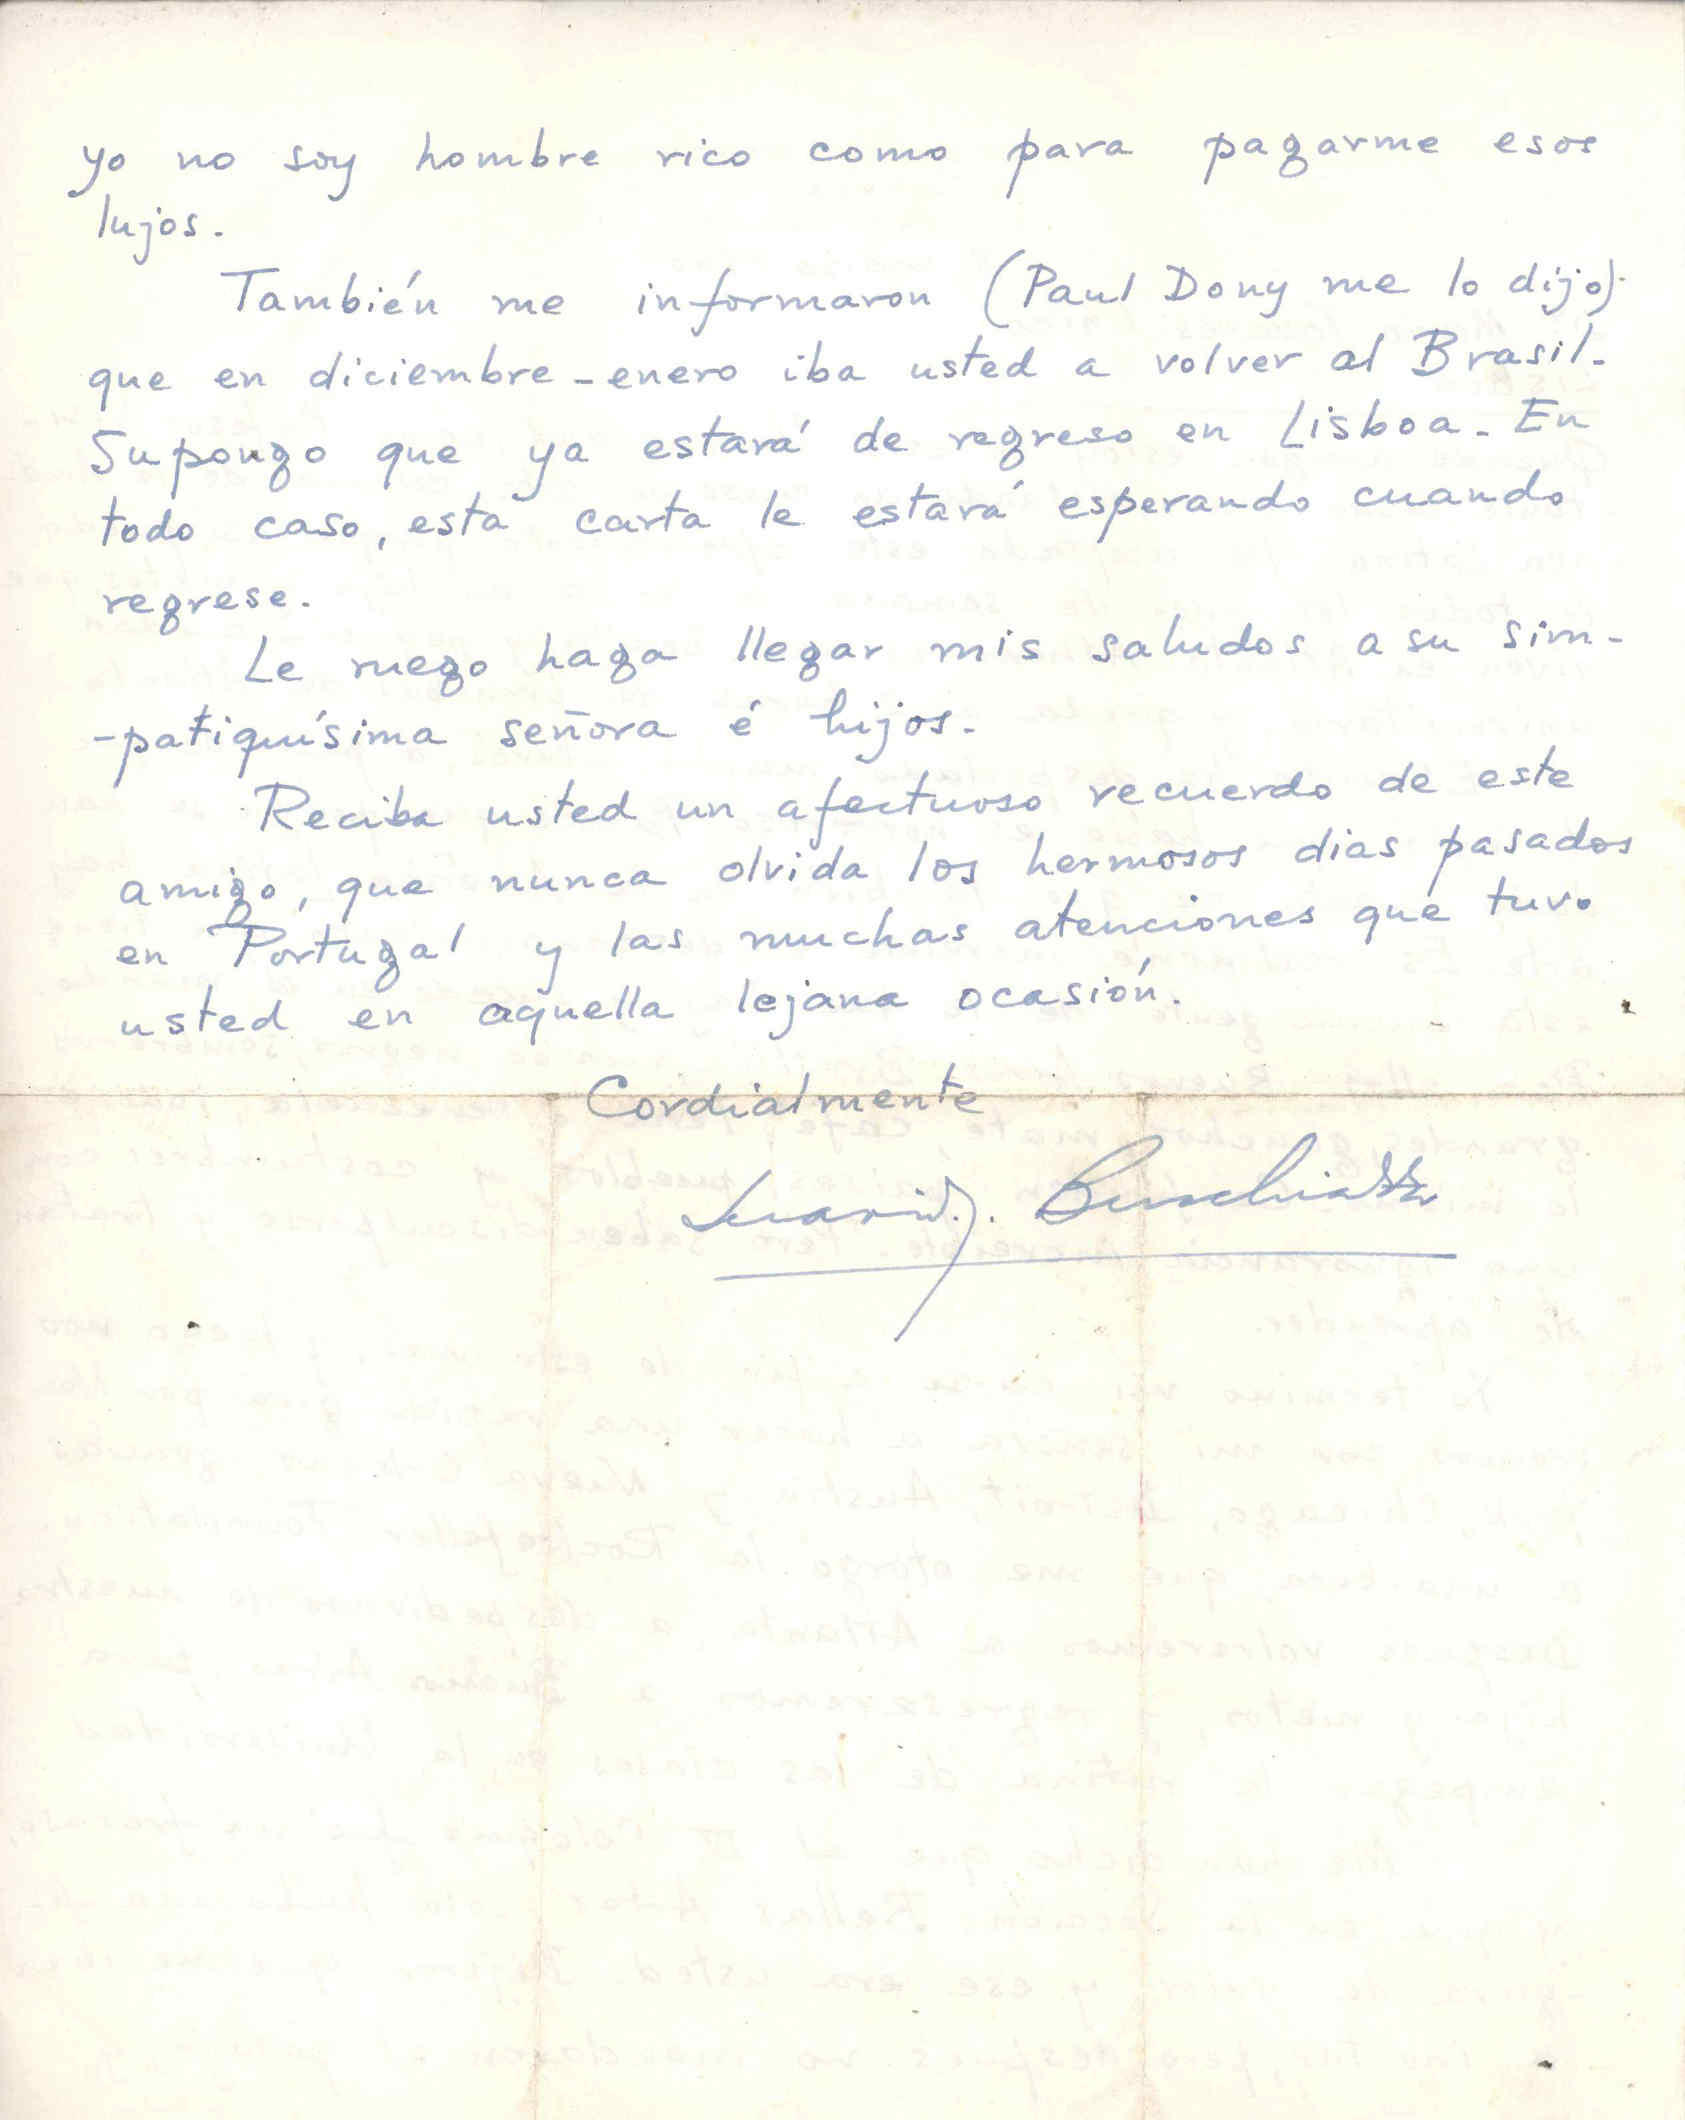 yo no soy hombre rico como para pagarme esos
lujos.
También me informaron (Paul Dony me lo dijo)
que en diciembre-enero iba usted a volver al Brasil.
Supongo que ya estará de regreso en Lisboa. En
todo caso, esta carta le estará esperando cuando
regrese.
Le ruego haga llegar mis saludos a su sim-
-patiquísima señora é hijos.
Reciba usted un afectuoso recuerdo de este
amigo, que nunca olvida los hermosos dias pasados
en Portugal y las muchas atenciones que tuvo
usted en aquella lejana ocasión.
Cordialmente
Mario J. Buschiazzo